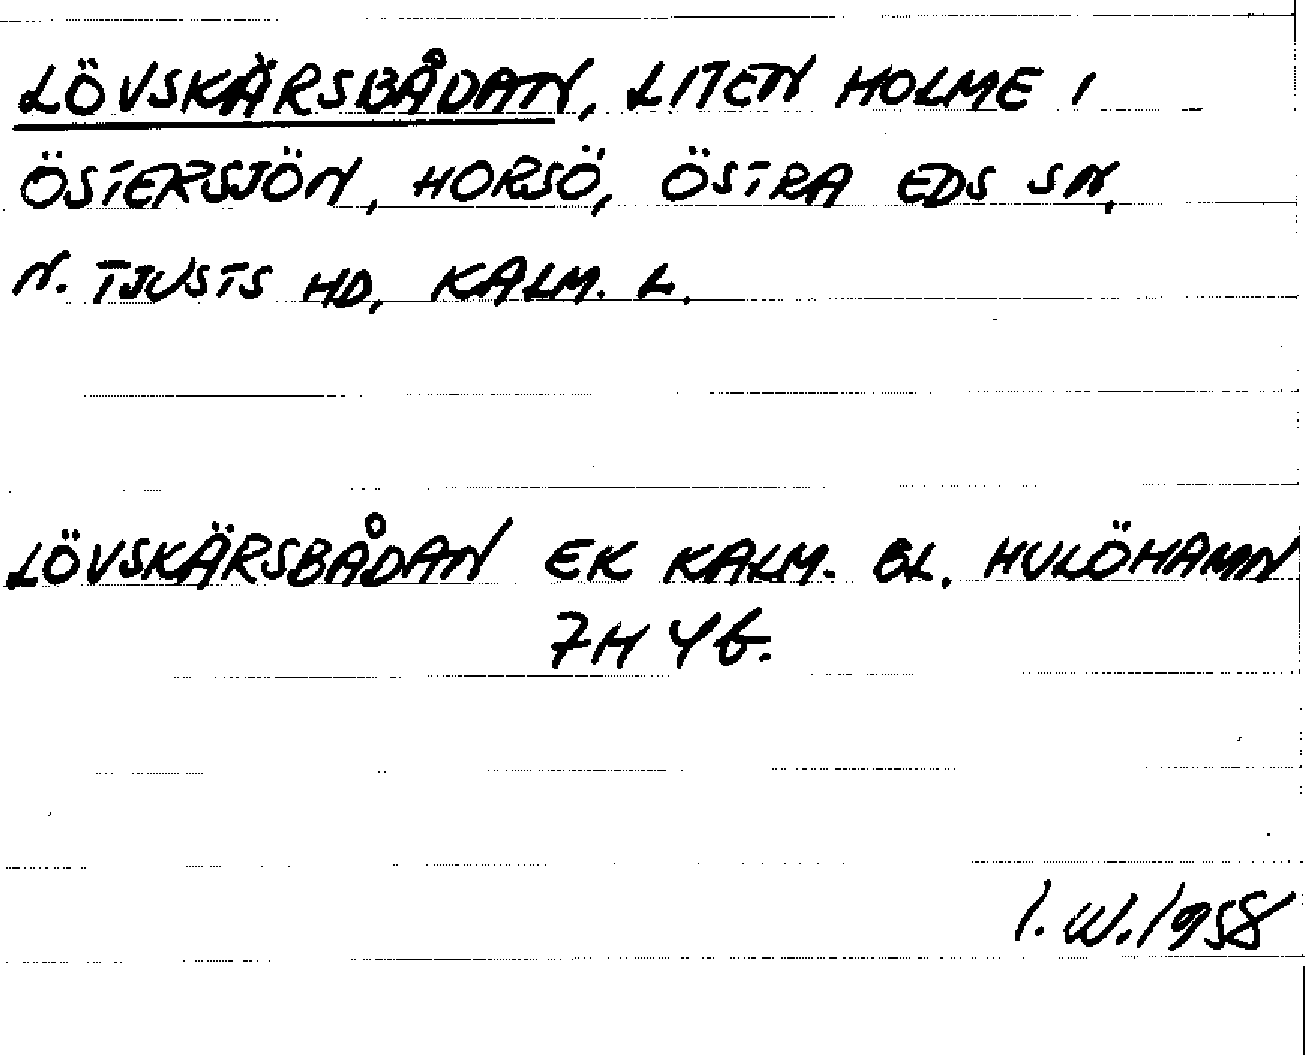 LÖVSKÄRSBÅDAN, LITEN HOLME I
ÖSTERSJÖN, HORSÖ, ÖSTRA EDS SN,
N. TJUSTS HD, KALM. L.
LÖVSKÄRSBÅDAN EK KALM. BL. HULÖHAMN
7H 4b.
I. W. 1958